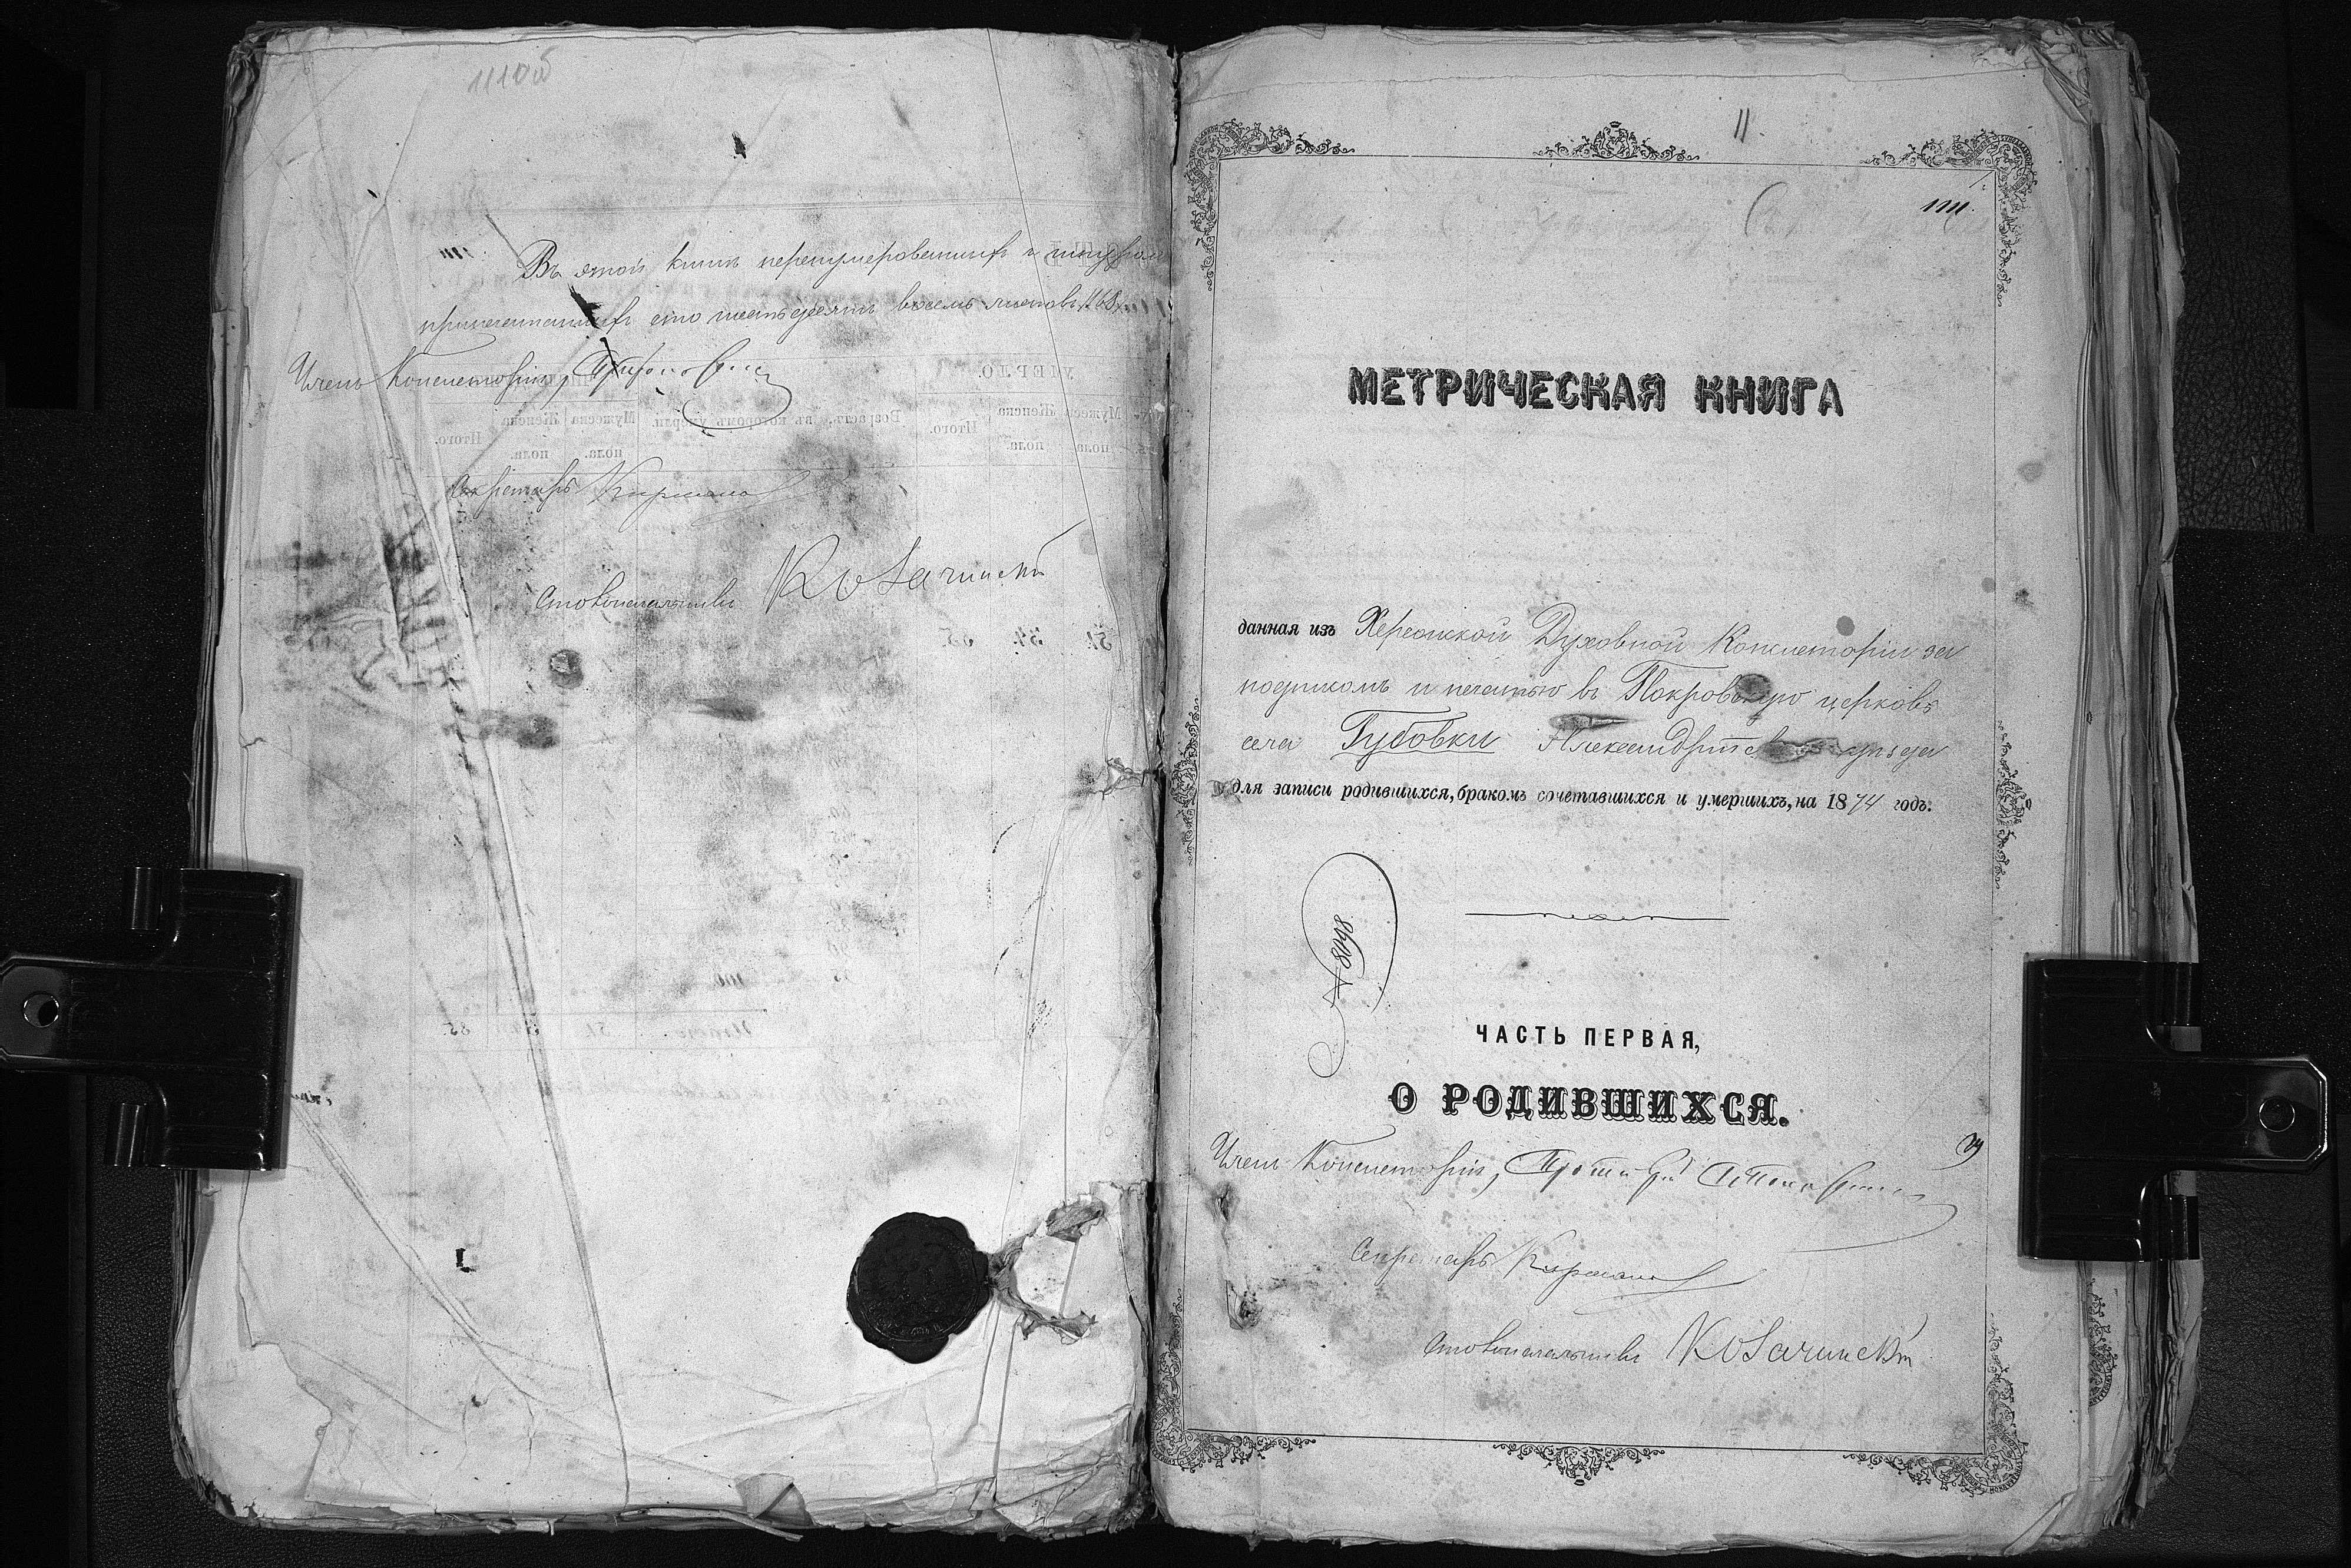 1110об
Въ этой книгѣ перенумерованныхъ и
припечатанныхъ сто шестьдесятъ восемь листовъ /168/
Членъ Консисторіи,
Секретарь
Столоначальникъ Козачинскій
11.
1111.
МЕТРИЧЕСКАЯ КНИГА
данная изъ Херсонской Духовной Консисторіи за
подписомъ и печатью въ Покровскую церковь
села Губовки Александрійскаго уѣзда
для записи родившихся, бракомъ сочетавшихся и умершихъ, на 1874 годъ.
№ 8098
ЧАСТЬ ПЕРВАЯ,
О РОДИВШИХСЯ.
Членъ Консисторіи,
Секретарь
Столоначальникъ Козачинскій